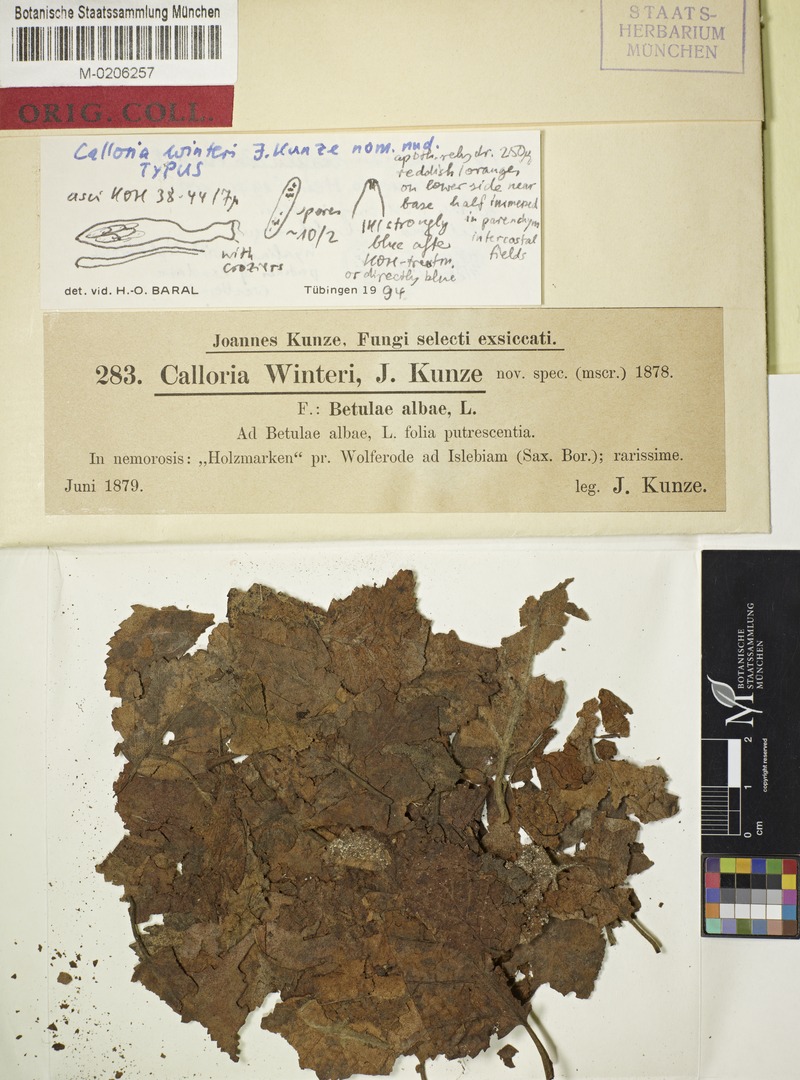 Botanische Staatssammlung München
M-0206257
ORIG. COLL.
STAATS-
HERBARIUM
MÜNCHEN
Calloria winteri J. Kunze nom. nud.
TYPUS
apoth. rehydr. 250µ
reddish/orange
on lower side near
base half immersed
in parenchym
intercostal
fields
asci KOH 38-44/7µ
with
croziers
spores
~10/2
IKI strongly
blue after
KOH-treatm.
or directly blue
det. vid. H.-O. BARAL
Tübingen 1994
Joannes Kunze, Fungi selecti exsiccati.
283. Calloria Winteri, J. Kunze nov. spec. (mscr.) 1878.
F.: Betulae albae, L.
Ad Betulae albae, L. folia putrescentia.
In nemorosis: „Holzmarken“ pr. Wolferode ad Islebiam (Sax. Bor.); rarissime.
Juni 1879.
leg. J. Kunze.
BOTANISCHE
STAATSSAMMLUNG
MÜNCHEN
0 1 2
cm
copyright reserved